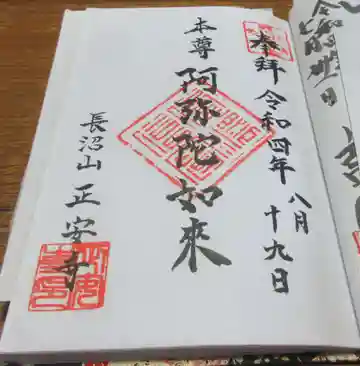 奉拝 令和四年
八月
十九日
本尊
阿弥陀如來
長沼山 正安寺